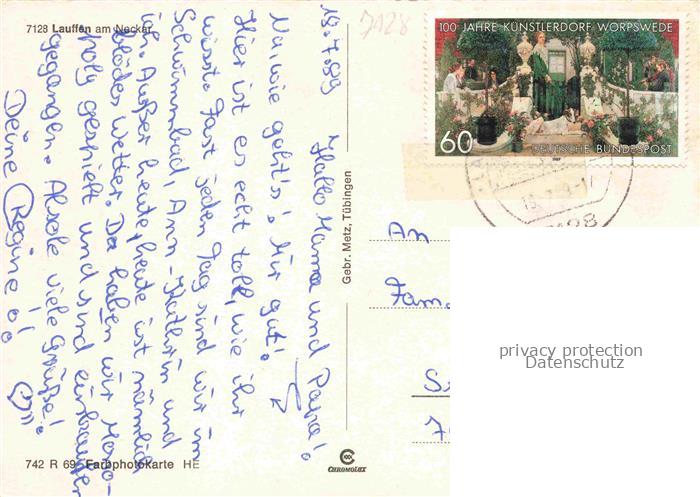 7128 Lauffen am Neckar
7128
100 JAHRE KÜNSTLERDORF WORPSWEDE
60
DEUTSCHE BUNDESPOST
18.7.89
Hallo Mama und Papa!
Na, wie geht's? Mir gut!
Hier ist es echt toll, wie ihr
wisst. Fast jeden Tag sind wir im
Schwimmbad, Ann-Kathrin und
ich. Außer heute, heute ist nämlich
blödes Wetter. Da haben wir Mono-
poly gespielt und sind einkaufen
gegangen. Also viele Grüße!
Deine Regine
Gebr. Metz, Tübingen
An
Fam.
742 R 69 Farbphotokarte HE
CHROMOLUX
privacy protection
Datenschutz